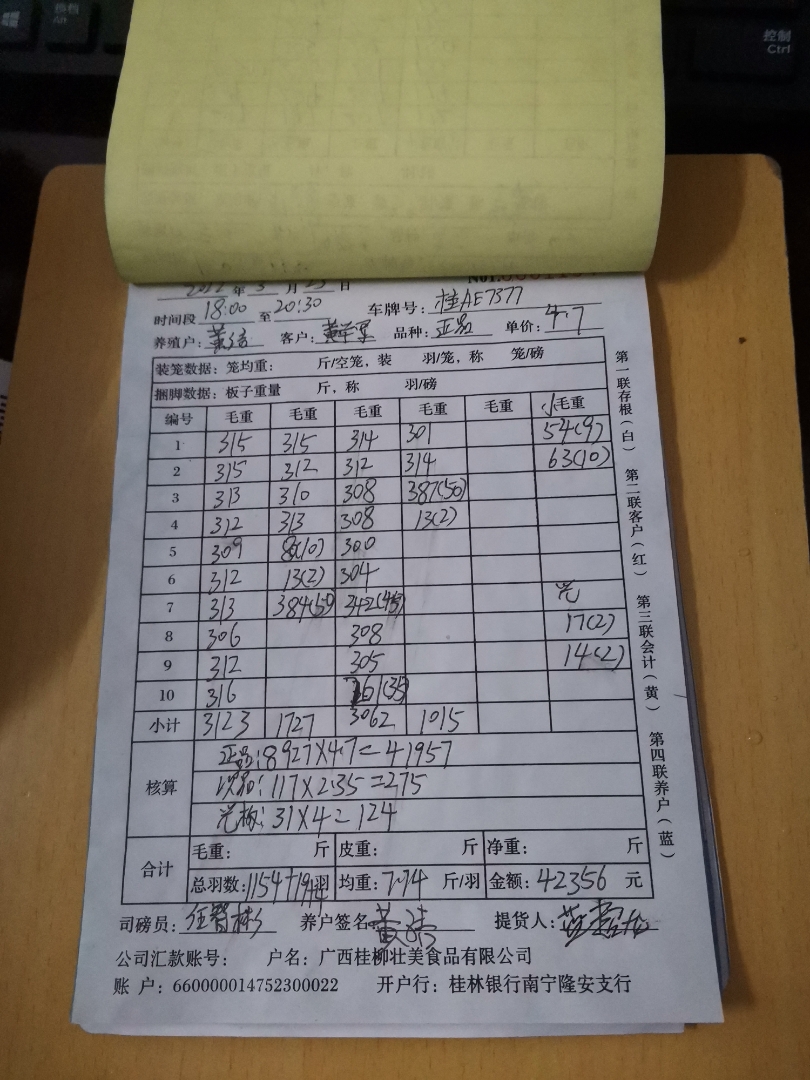 控制
Ctrl
Alt
2022年3月25日 No1:
时间段 18:00 至 20:30 车牌号: 桂AE7377
养殖户: 客户: 品种: 正品 单价: 4.7
装笼数据: 笼均重: 斤/空笼, 装 羽/笼, 称 笼/磅
捆脚数据: 板子重量 斤, 称 羽/磅
编号 毛重 毛重 毛重 毛重 毛重 小毛重
1 315 315 314 301 54(9)
2 315 312 312 314 63(10)
3 313 310 308 387(50)
4 312 313 308 13(2)
5 309 300
6 312 13(2) 304
7 313 384(50) 342(45) 光
8 306 308 17(2)
9 312 305 14(2)
10 316 261(35)
小计 3123 1727 3062 1015
核算
正品: 8927×4.7=41957
次品: 117×2.35=275
光板: 31×4=124
合计
毛重: 斤 皮重: 斤 净重: 斤
总羽数: 1154+19+4羽 均重: 7.74 斤/羽 金额: 42356 元
司磅员: 养户签名 提货人:
公司汇款账号: 户名: 广西桂柳壮美食品有限公司
账 户: 660000014752300022 开户行: 桂林银行南宁隆安支行
第一联存根(白) 第二联客户(红) 第三联会计(黄) 第四联养户(蓝)